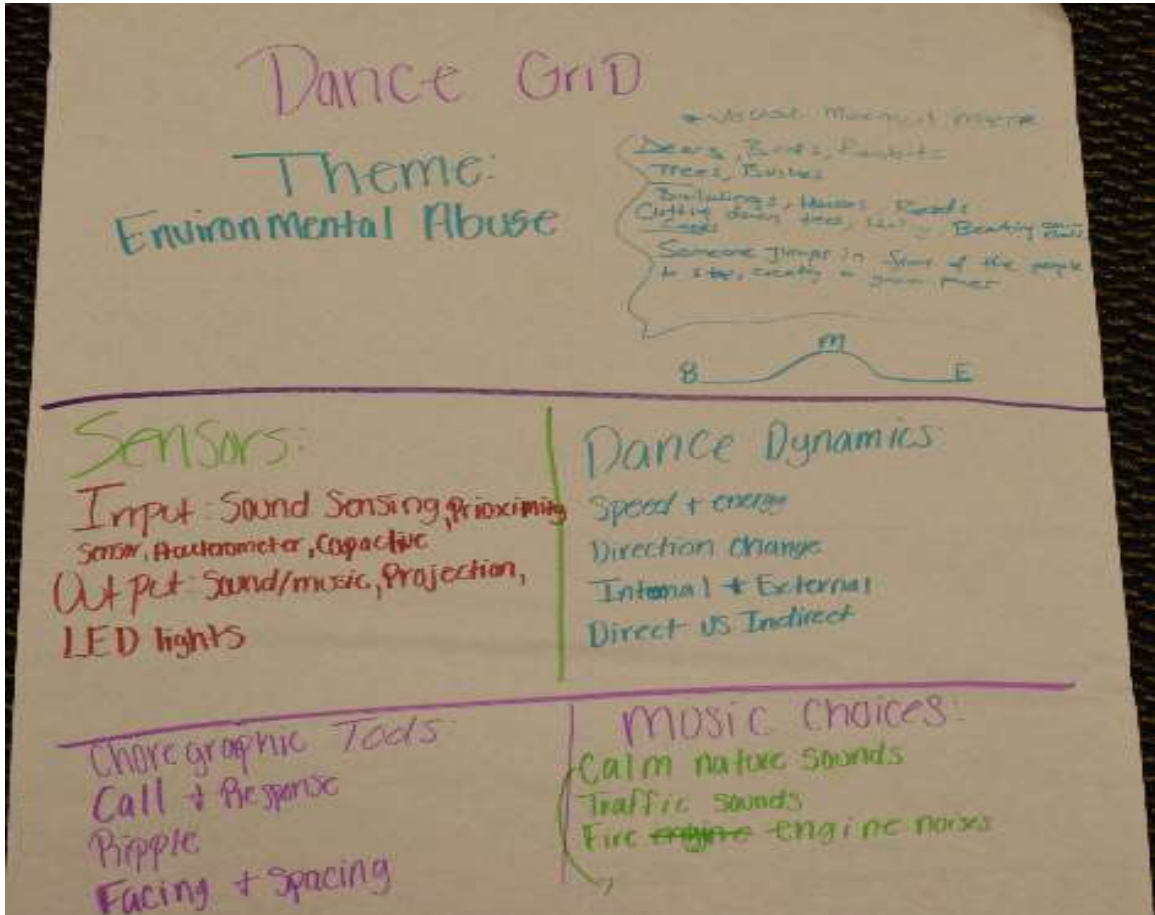 Dance GriD
Theme:
Environmental Abuse
Visual
Dears, Birds, Rabbits
Trees, Bushes
Buildings, Houses, Roads
Cutting down trees, Beating
Someone jumps in front of the people
to stop, creating a
B M E
Sensors:
Input: Sound Sensing, Prioximity
Sensor, Accelerometer, Capactive
Output: Sound/music, Projection,
LED lights
Dance Dynamics
Speed + energy
Direction change
Internal + External
Direct VS Indirect
Choregraphic Tools:
Call + Response
Ripple
Facing + Spacing
Music Choices:
Calm nature sounds
Traffic sounds
Fire engine noises